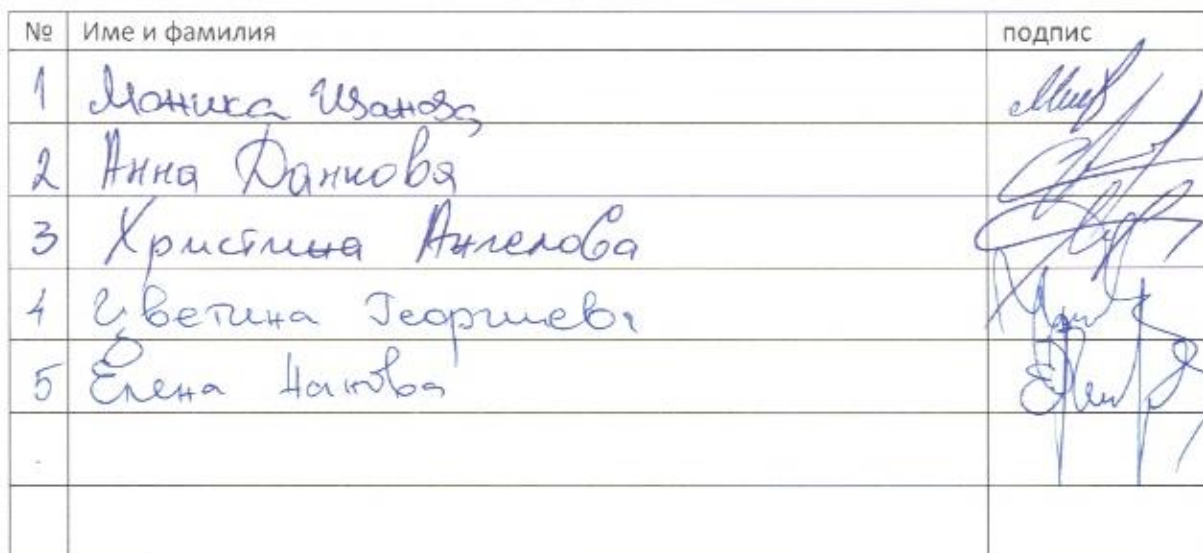 № Име и фамилия подпис
1 Моника Иванова
2 Анна Данкова
3 Христина Ангелова
4 Цветина Георгиева
5 Елена